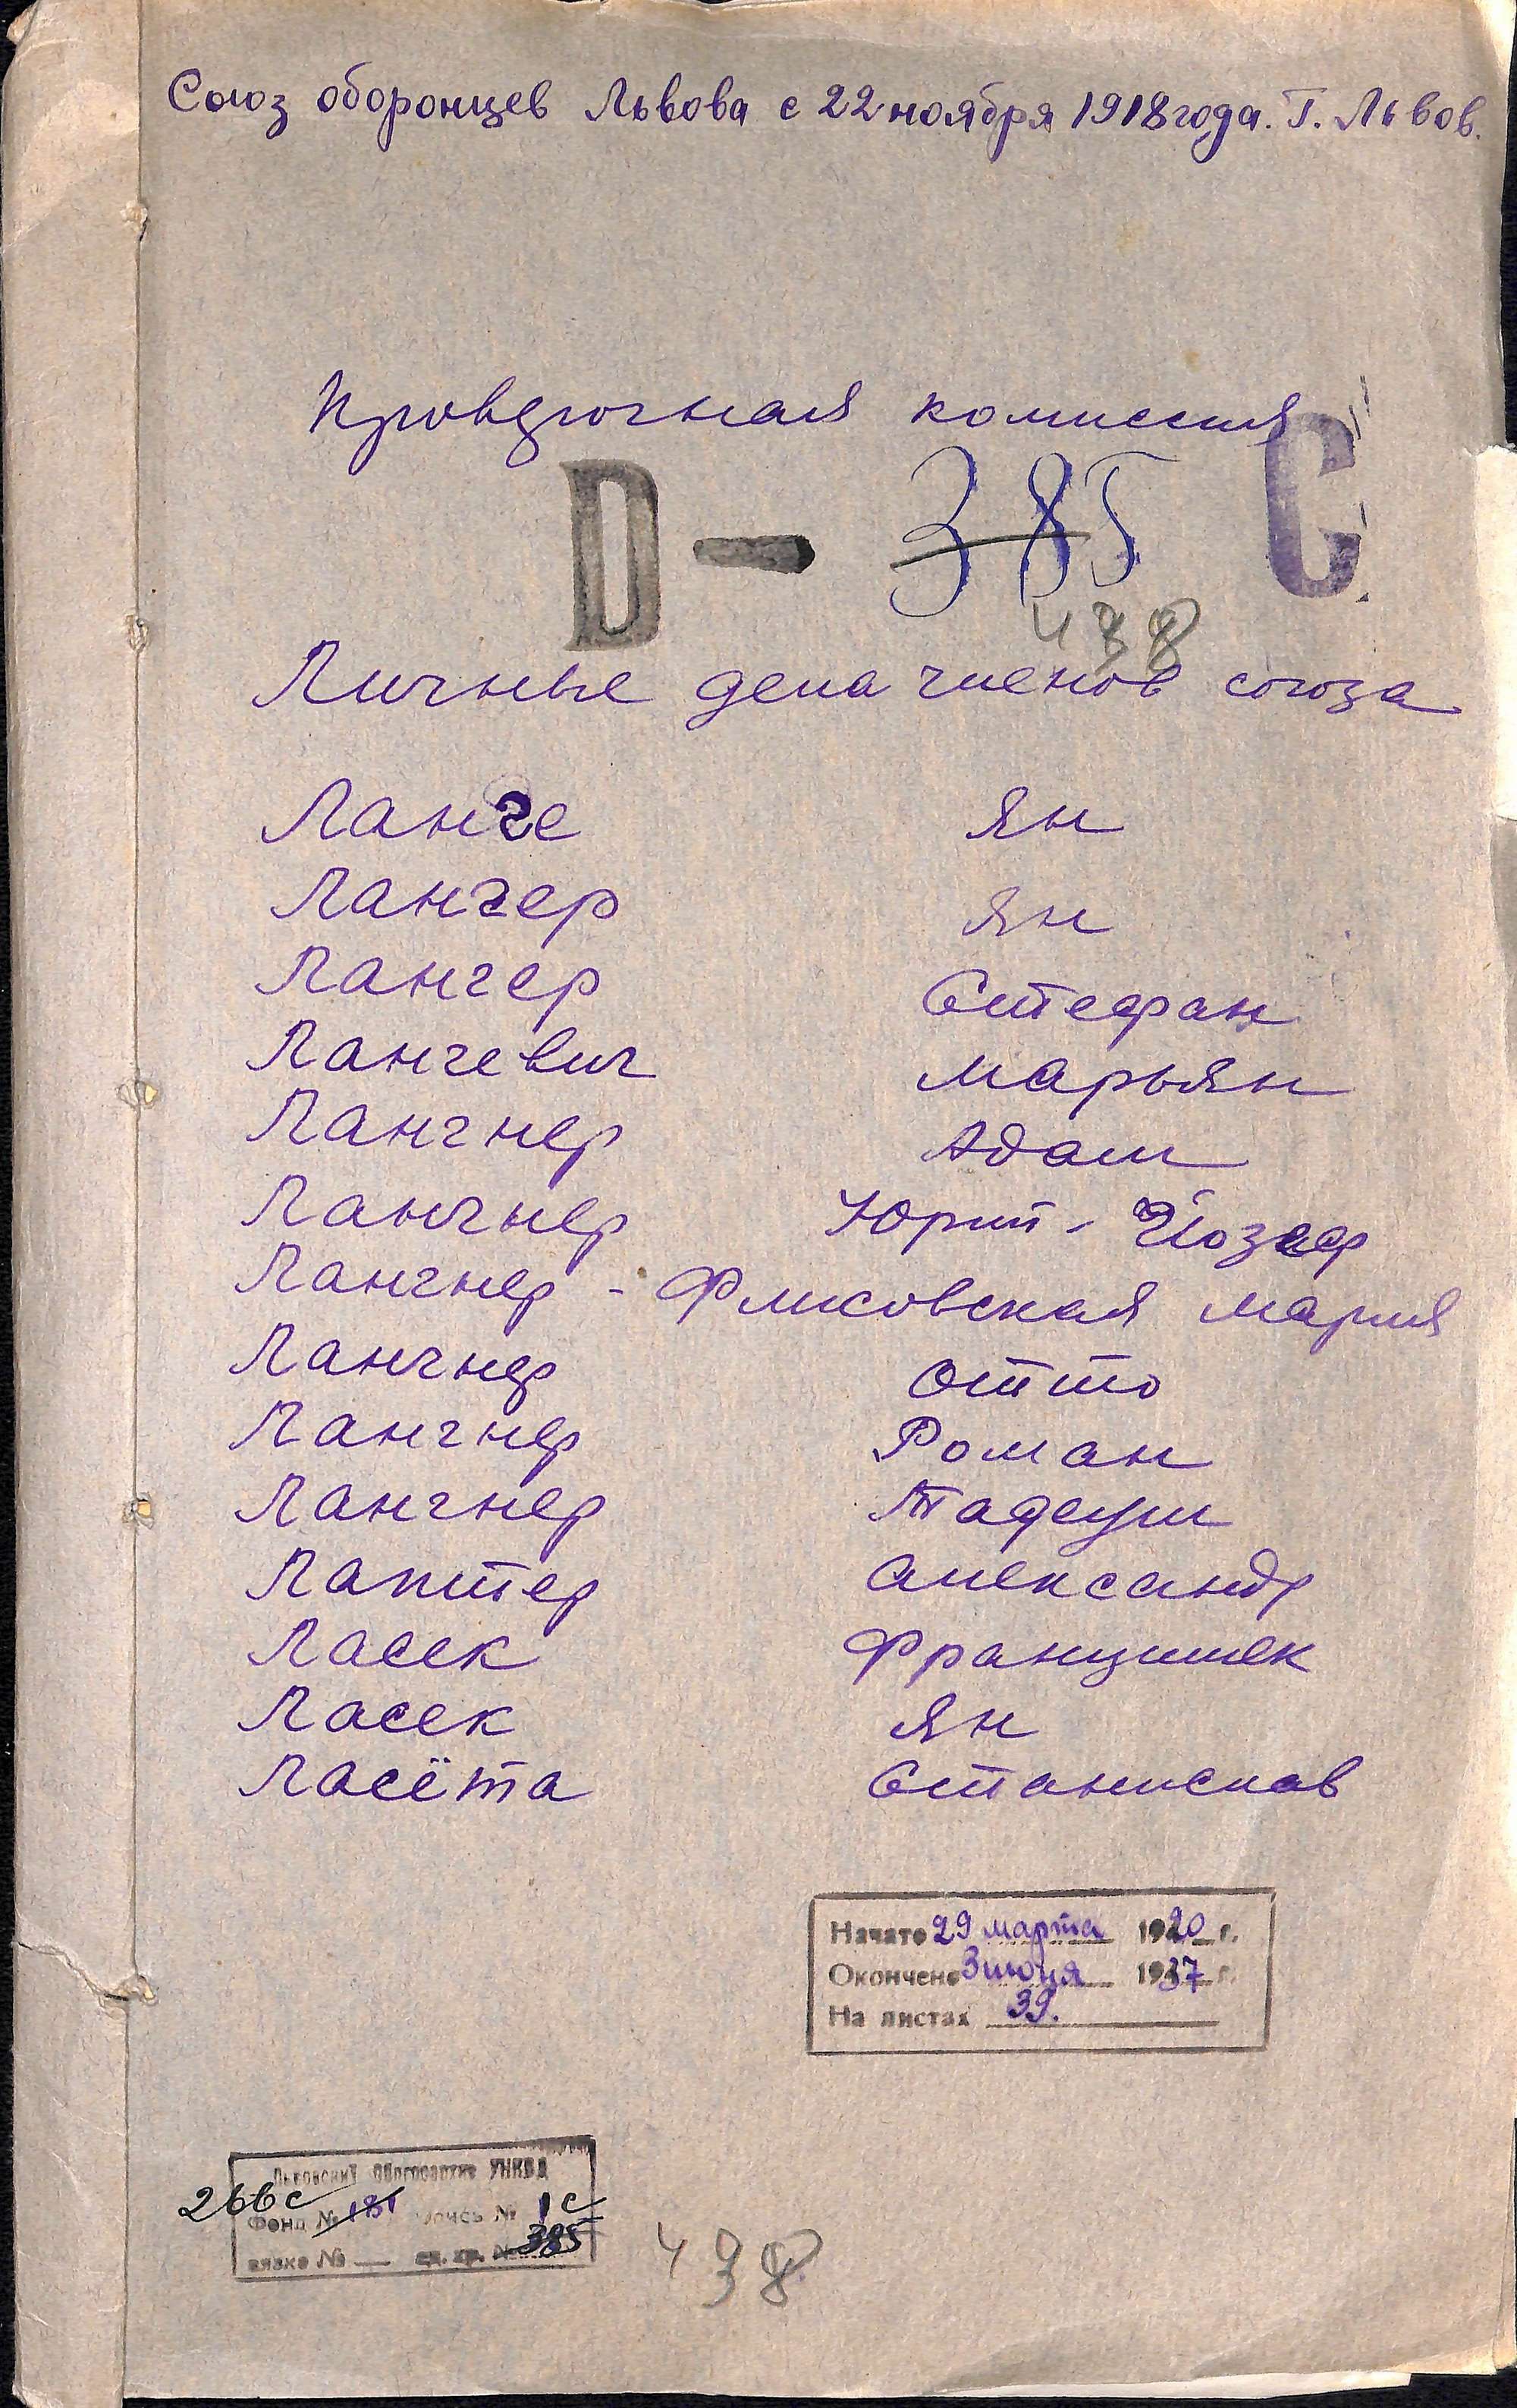 Союз оборонцев Львова с 22 ноября 1918 года. Г. Львов.
Проверочная комиссия
D — 385 C
438
Личные дела членов союза
Ланге Ян
Лангер Ян
Лангер Стефан
Лангевич Марьян
Лангнер Адам
Лангнер Юрий - Йозеф
Лангнер - Фликовская Мария
Лангнер Отто
Лангнер Роман
Лангнер Тадеуш
Лаптер Александр
Ласек Францишек
Ласек Ян
Ласёта Станислав
Начато 29 марта 1920 г.
Окончено 3 июня 1937 г.
На листах 39.
Львовский Облгосархив УНКВД
266с Фонд № 181 опись № 1с
вязка № — ед. хр. № 385
438